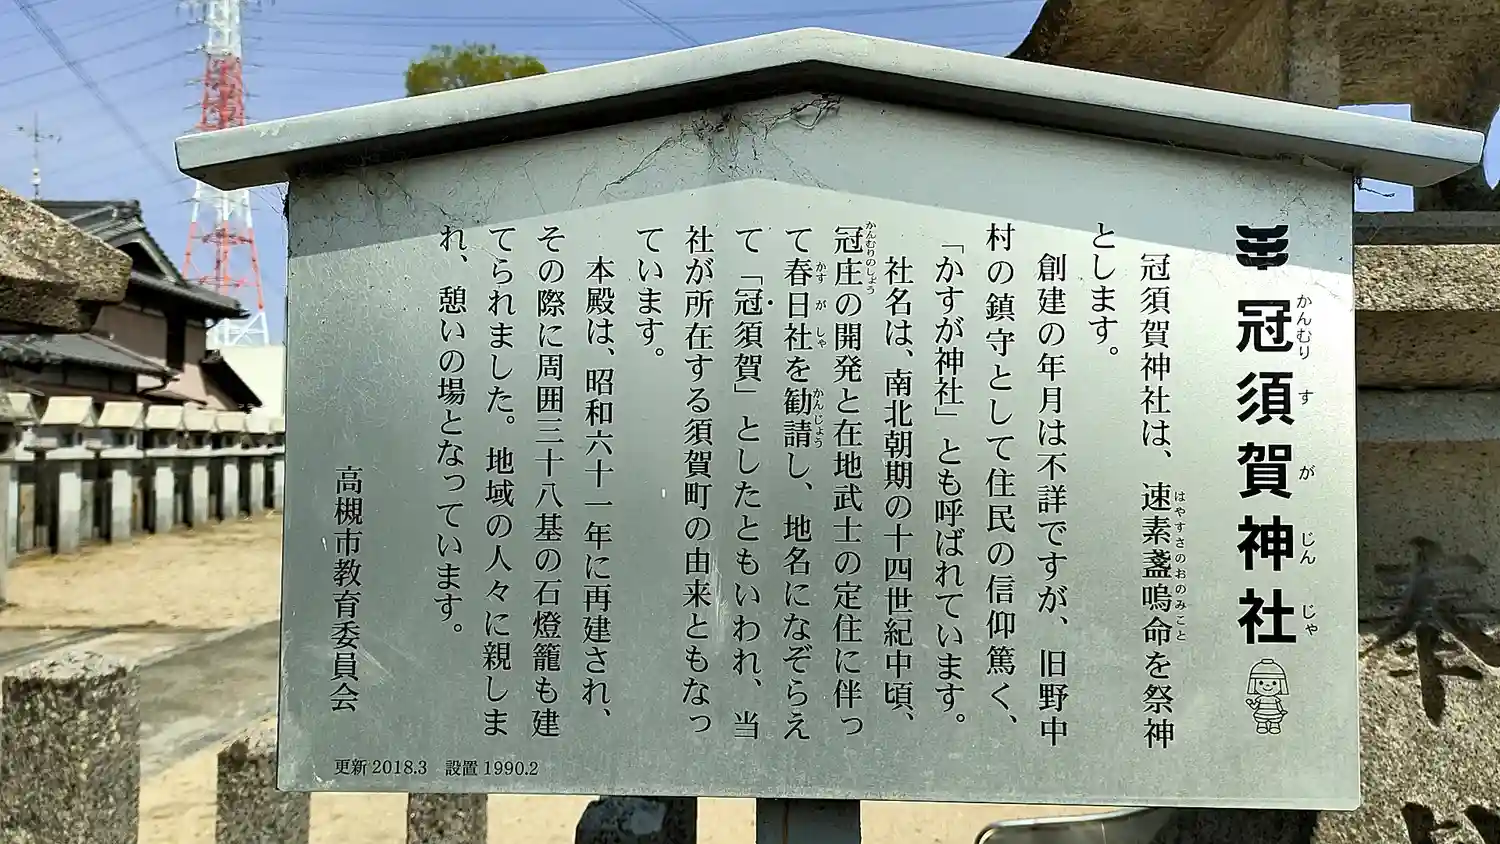 冠須賀神社
かんむりすがじんじゃ
冠須賀神社は、速素盞嗚命を祭神
はやすさのおのみこと
とします。
創建の年月は不詳ですが、旧野中
村の鎮守として住民の信仰篤く、
「かすが神社」とも呼ばれています。
社名は、南北朝期の十四世紀中頃、
冠庄の開発と在地武士の定住に伴っ
かんむりのしょう
て春日社を勧請し、地名になぞらえ
かすがしゃ かんじょう
て「冠須賀」としたともいわれ、当
社が所在する須賀町の由来ともなっ
ています。
本殿は、昭和六十一年に再建され、
その際に周囲三十八基の石燈籠も建
てられました。地域の人々に親しま
れ、憩いの場となっています。
高槻市教育委員会
更新 2018.3 設置 1990.2